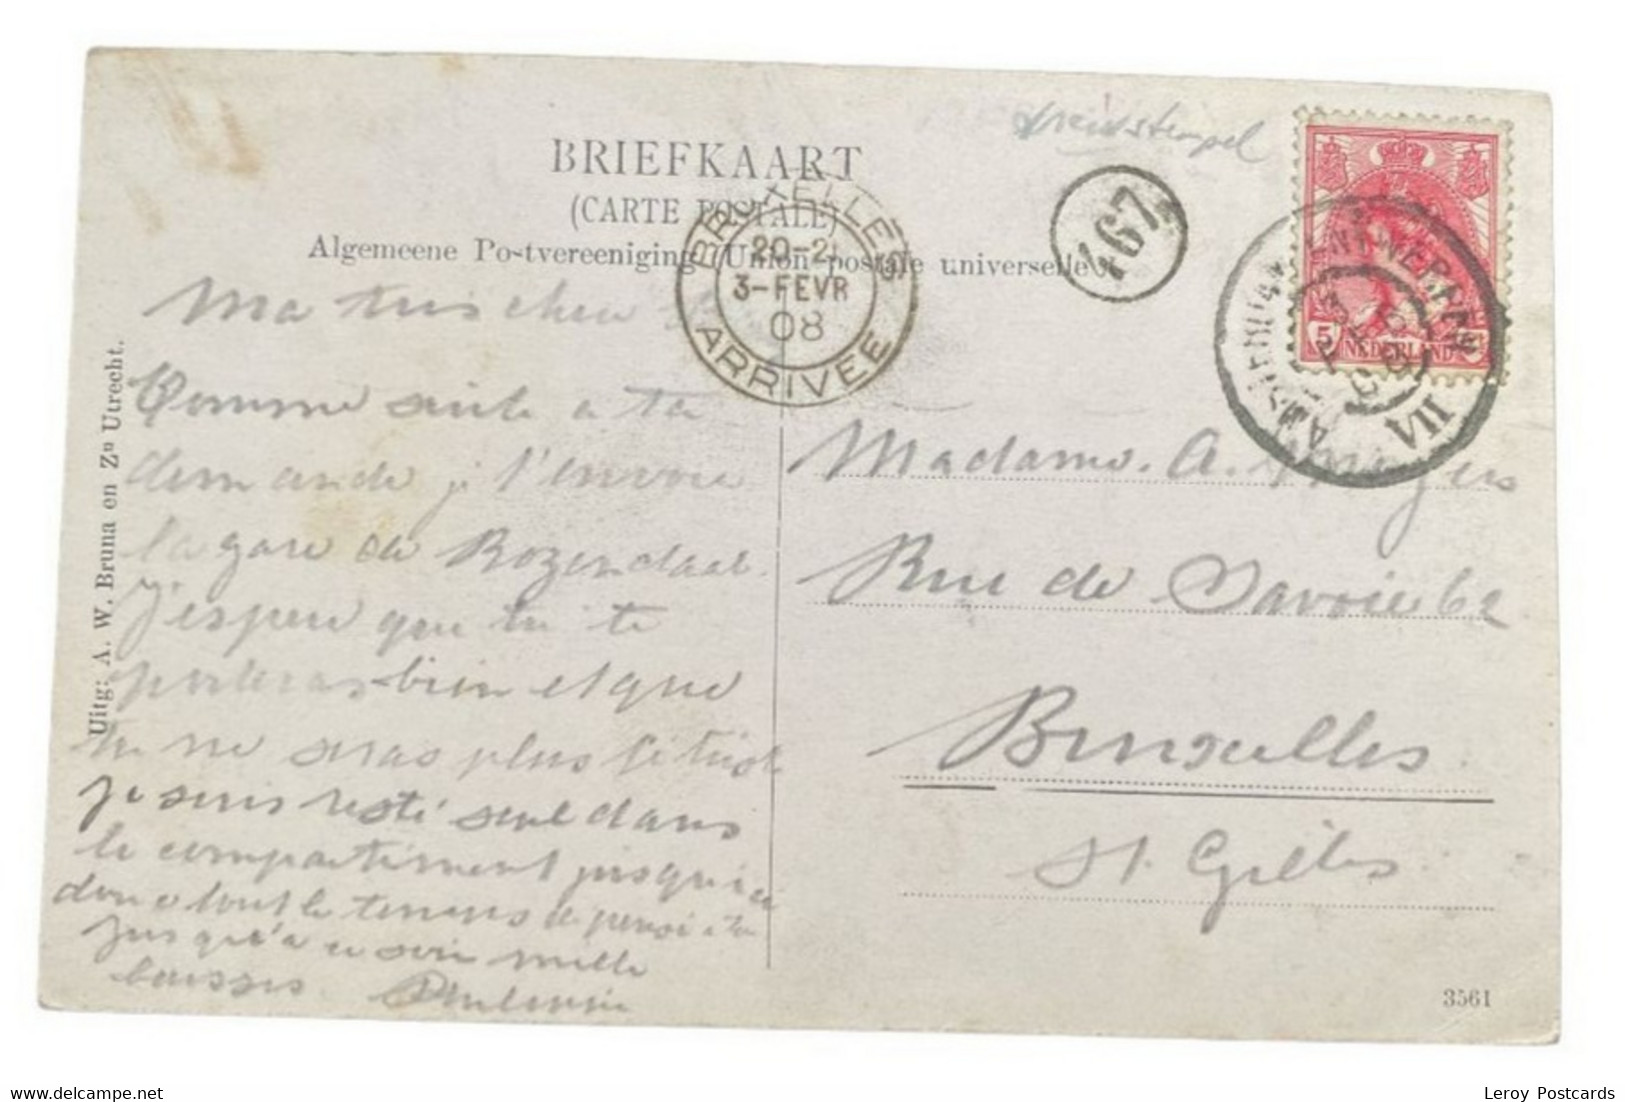 treinstempel
BRIEFKAART
(CARTE POSTALE)
Algemeene Postvereeniging (Union postale universelle)
BRUXELLES
20-21
3-FEVR
08
ARRIVÉE
467
5 NEDERLAND
AMSTERDAM-ANTWERPEN
VII
Ma très cher
Comme suite a ta
demande je t'envoie
la gare de Rozendaal.
J'espere que tu te
porteras bien et que
tu ne seras plus si triste
je suis resté seul dans
le compartiment jusqu'ici
donc tout le temps j'ai pensé a toi
jusqu'à ce soir mille
baisses
Madame. A.
Rue de Savoie 62
Bruxelles
St. Gilles
Uitg: A. W. Bruna en Zn Utrecht.
3561
delcampe.net
Leroy Postcards